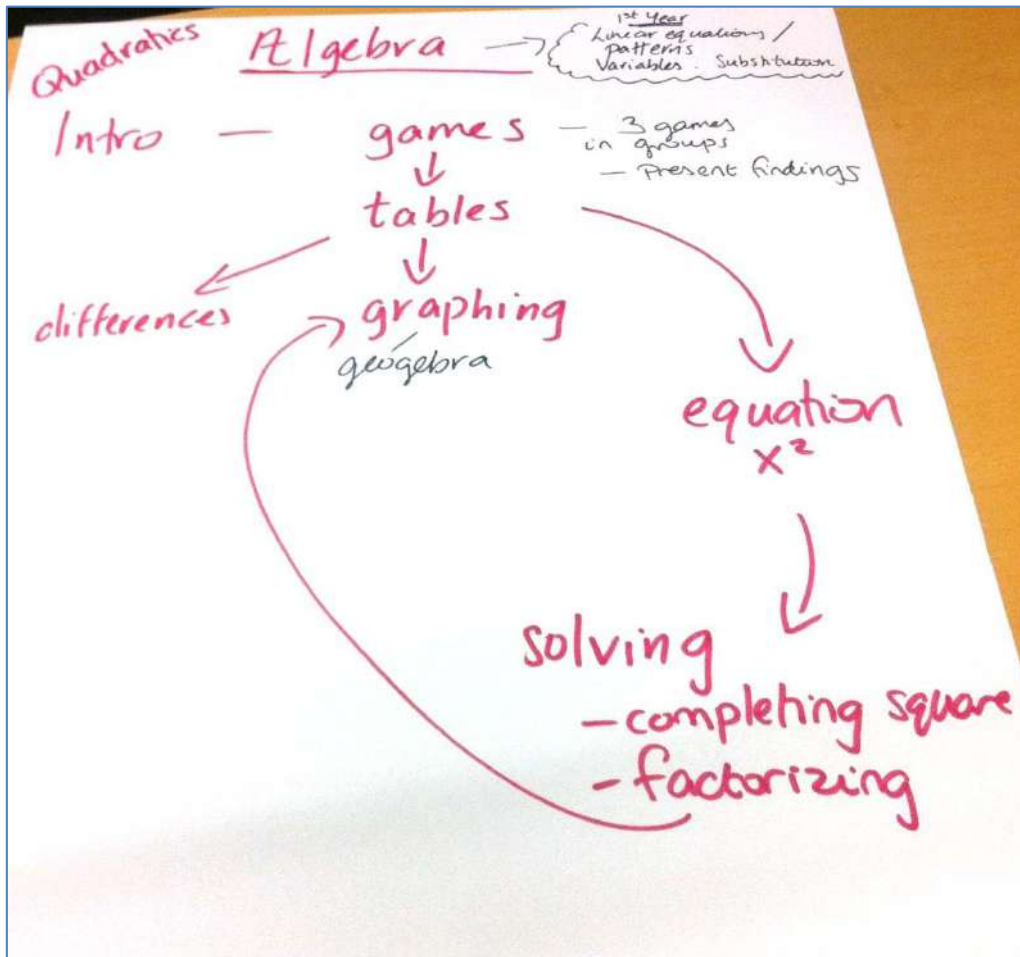 Quadratics
Algebra
1st Year
Linear equations /
patterns
Variables. Substitution
Intro — games
— 3 games
in groups
— Present findings
tables
differences
graphing
geogebra
equation
x²
solving
— completing square
— factorizing